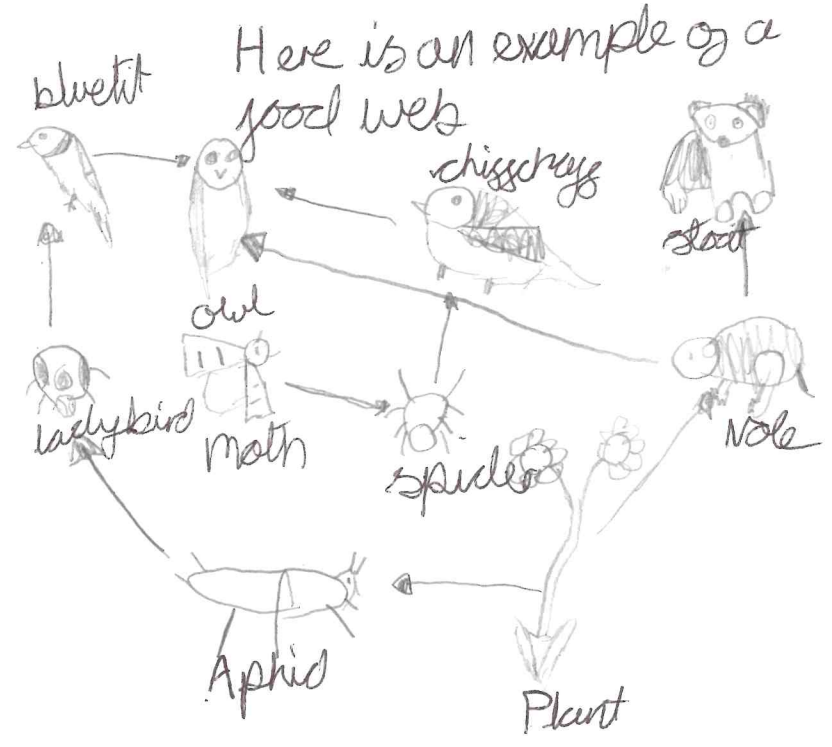 Here is an example of a
food web
bluetit
chiffchaff
stoat
owl
ladybird
Moth
spider
Vole
Aphid
Plant